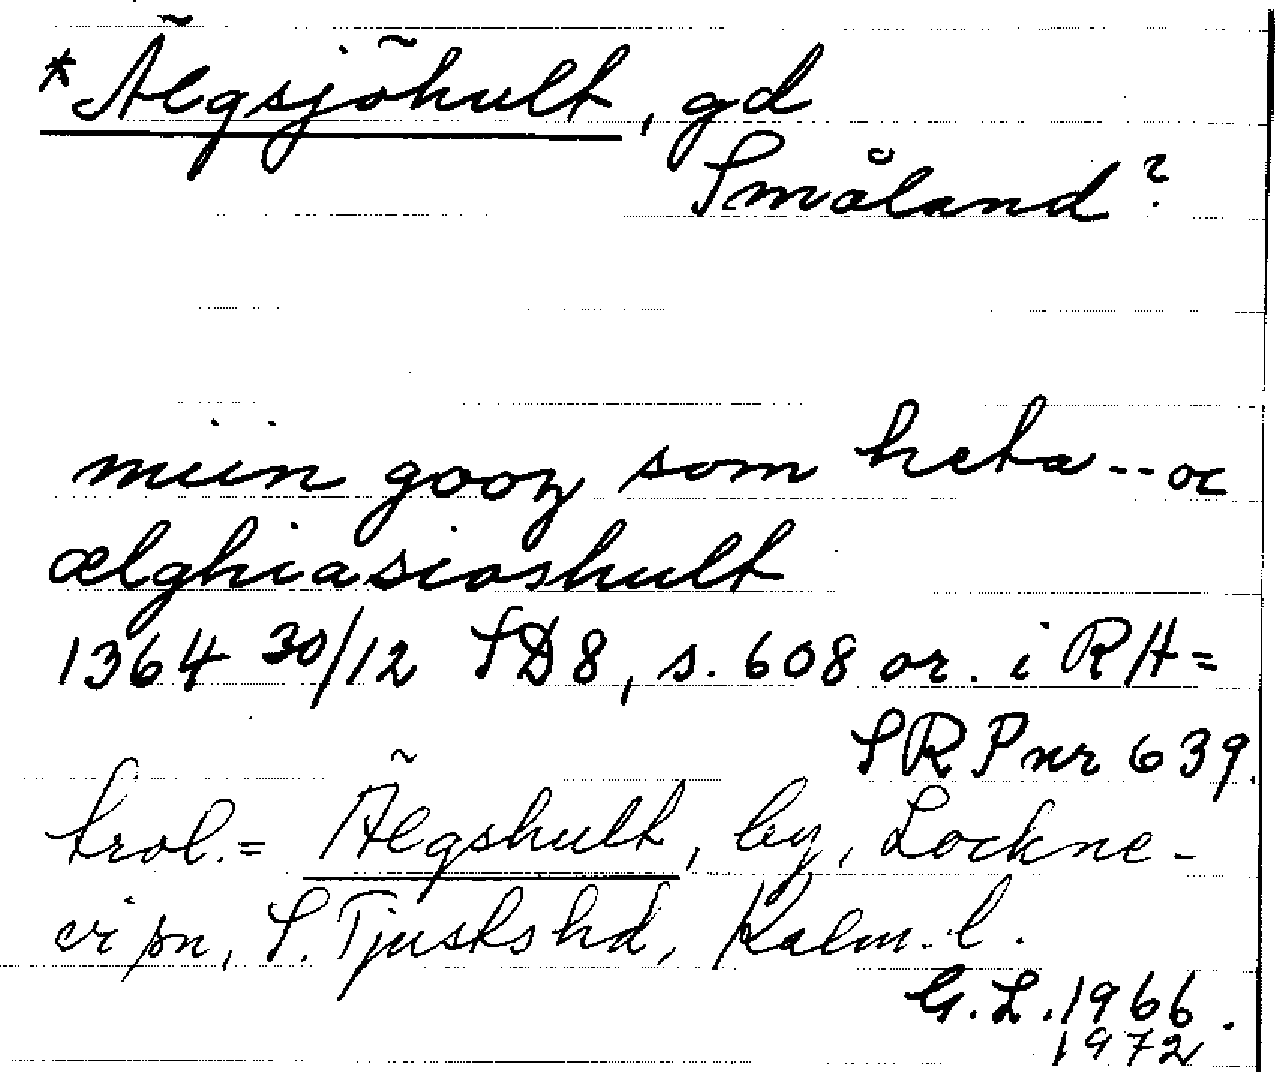 *Älgsjöhult, gd
Småland?
miin gooz som heta -- oc
ælghiasioshult
1364 30/12 SD8, s. 608 or. i RA =
SRP nr 639.
trol. = Älgshult, by, Lockne-
vi sn, S. Tjusts hd, Kalm. l.
G. L. 1966.
1972